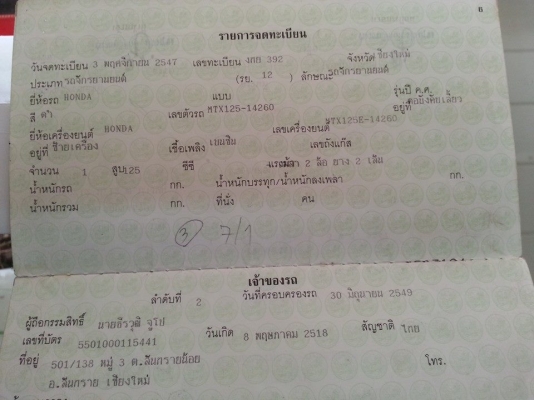 8
รายการจดทะเบียน
วันจดทะเบียน 3 พฤศจิกายน 2547 เลขทะเบียน งกย 392 จังหวัด เชียงใหม่
ประเภท รถจักรยานยนต์ (รย. 12 ) ลักษณะ รถจักรยานยนต์
ยี่ห้อรถ HONDA แบบ รุ่นปี ค.ศ.
สี ดำ เลขตัวรถ MTX125-14260 อยู่ที่ คอฝั่งคัยเลี้ยว
ยี่ห้อเครื่องยนต์ HONDA เลขเครื่องยนต์ MTX125E-14260
อยู่ที่ ซ้ายเครื่อง เชื้อเพลิง เบนซิน เลขถังแก๊ส
จำนวน 1 สูบ 125 ซีซี แรงม้า 2 ล้อ ยาง 2 เส้น
น้ำหนักรถ กก. น้ำหนักบรรทุก/น้ำหนักลงเพลา กก.
น้ำหนักรวม กก. ที่นั่ง คน
3 7/1
เจ้าของรถ
ลำดับที่ 2 วันที่ครอบครองรถ 30 มิถุนายน 2549
ผู้ถือกรรมสิทธิ์ นายธีรวุฒิ จูโป
เลขที่บัตร 5501000115441 วันเกิด 8 พฤษภาคม 2518 สัญชาติ ไทย
ที่อยู่ 501/138 หมู่ 3 ต.สันทรายน้อย โทร.
อ.สันทราย เชียงใหม่